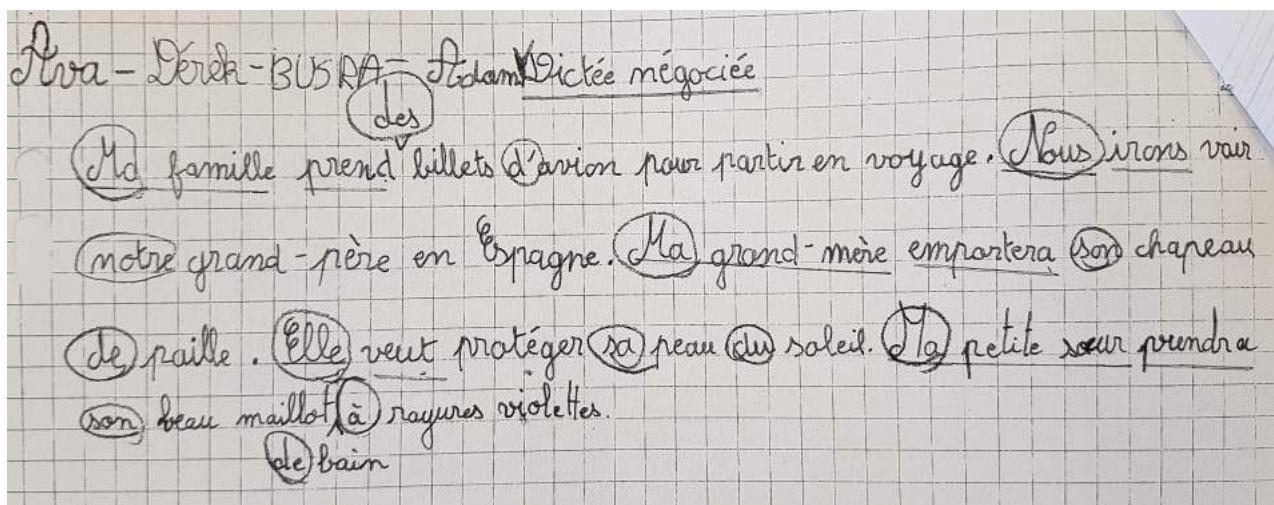 Ava - Dérek - BUSRA - Adam Dictée négociée
des
Ma famille prend billets d'avion pour partir en voyage. Nous irons voir
notre grand-père en Espagne. Ma grand-mère emportera son chapeau
de paille. Elle veut protéger sa peau du soleil. Ma petite sœur prendra
son beau maillot à rayures violettes.
de bain